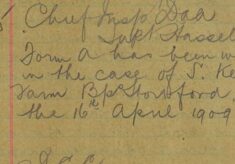 Chief Insp
Supt Hassel
Form A has been w
in the case of J. Ke
Farm Bps Stortford,
the 16th April 1909